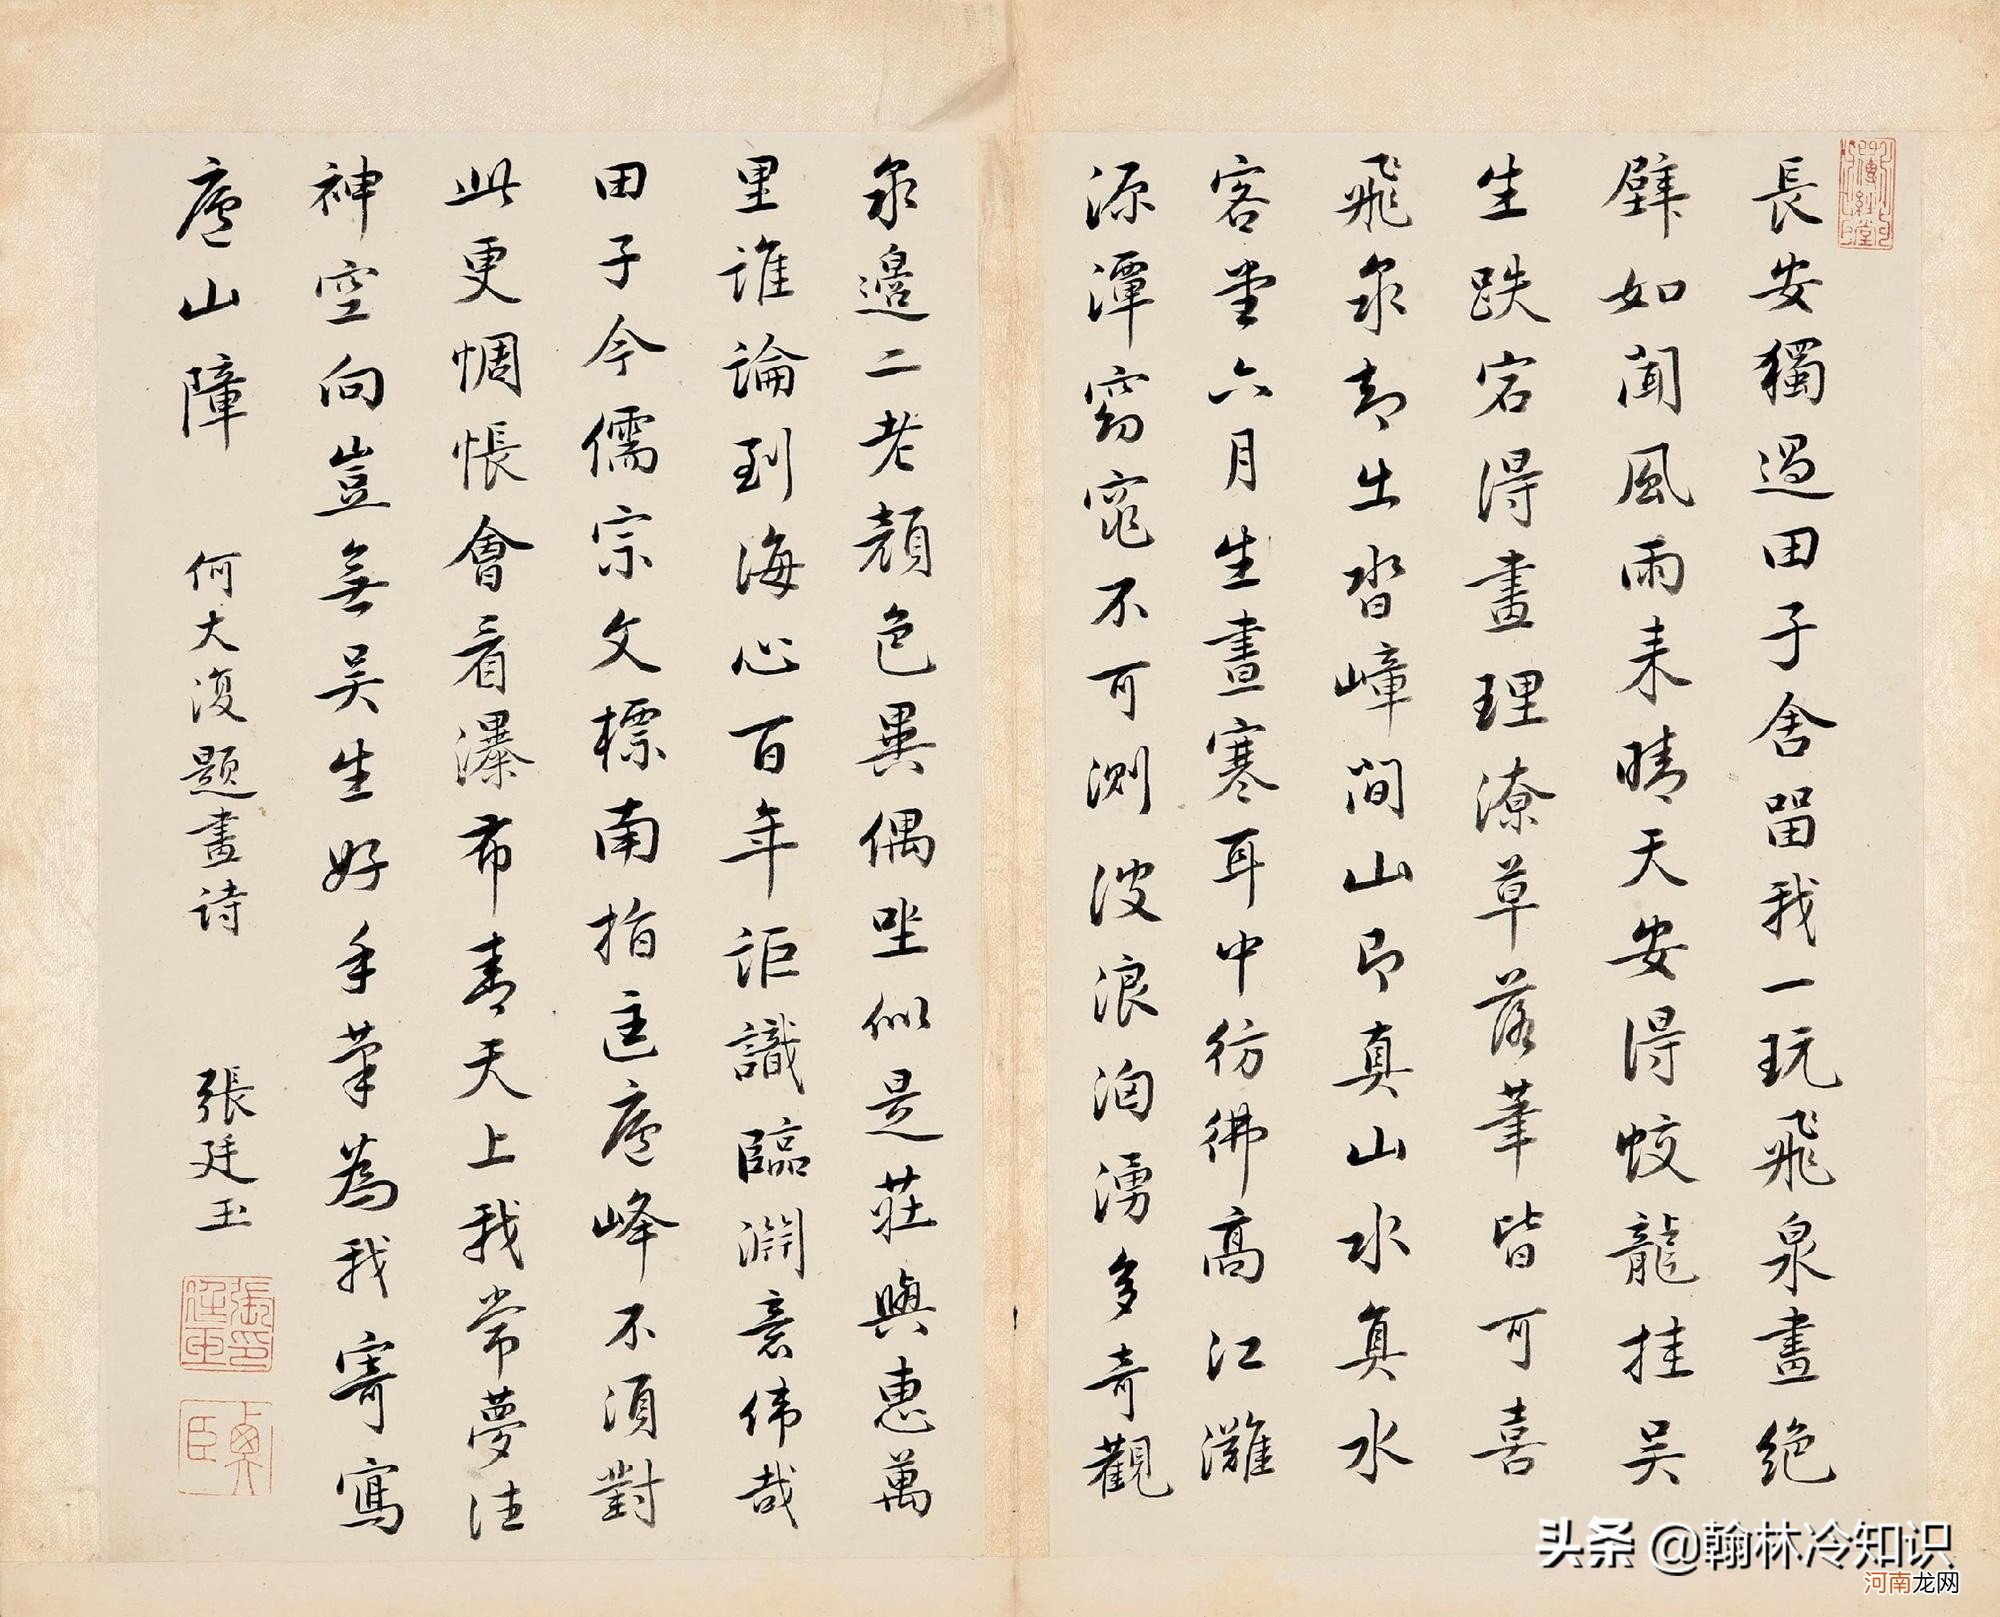 長安獨過田子舍留我一玩飛泉畫絕
壁如聞風雨来晴天安得蛟龍挂吴
生跌宕得畫理潦草落筆皆可喜
飛泉却出沓嶂間山即真山水真水
客堂六月生晝寒耳中彷彿高江灘
源潭窈窕不可測波浪洶湧多奇觀
泉邊二老顏色異偶坐似是莊與惠萬
里誰論到海心百年詎識臨淵意偉哉
田子今儒宗文標南指匡廬峰不須對
此更惆悵會看瀑布青天上我常夢往
神空向豈無吴生好手筆為我寄寫
廬山障 何大復題畫詩 張廷玉
張廷玉印
頭条 @翰林冷知识
河南龙网